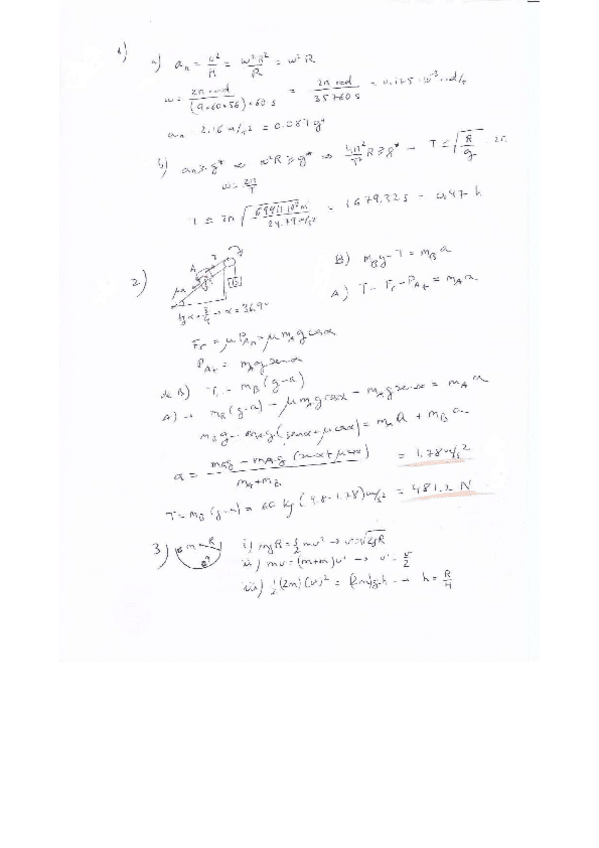 1)
a) aₙ = v²/R = ω²R²/R = ω²R
ω = 2π rad/((9·60+56)·60 s) = 2π rad/35760 s = 0.175·10⁻³ rad/s
aₙ 2.16 m/s² = 0.087 g*
b) aₙ ≥ g* ⇒ ω²R ≥ g* ⇒ 4π²/T² R ≥ g* → T ≤ √(R/g) · 2π
ω = 2π/T
T ≤ 2π √(/24.79 m/s²) = 1679.32 s = 0.47 h
2)
A T
μ B
tg α = 3/4 → α = 36.9°
B) m_B g - T = m_B a
A) T - Fr - P_At = m_A a
Fr = μ P_An = μ m_A g cos α
P_At = m_A g sen α
de B) T = m_B (g-a)
A) → m_B (g-a) - μ m_A g cos α - m_A g sen α = m_A a
m_B g - m_A g (sen α + μ cos α) = m_A a + m_B a
a = (m_B g - m_A g (sen α + μ cos α))/(m_A + m_B) = 1.78 m/s²
T = m_B (g-a) = 60 kg (9.8 - 1.78) m/s² = 481.2 N
3) m R
i) mgR = ½ mv² → v = √2gR
ii) mv = (m+m)v' → v' = v/2
iii) ½ (2m) (v')² = (2m)gh → h = R/4